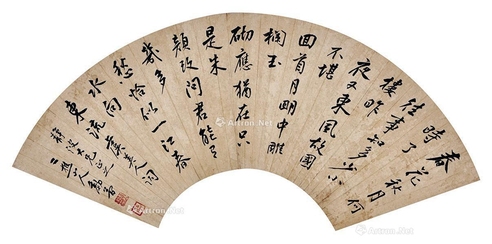 春花秋月何
時了
往事知多少小
樓昨
夜又東風故國
不堪
回首月明中雕
欄玉
砌應猶在只
是朱
顏改問君能有
幾多
愁恰似一江春
水向
東流 虞美人詞
大兄正之